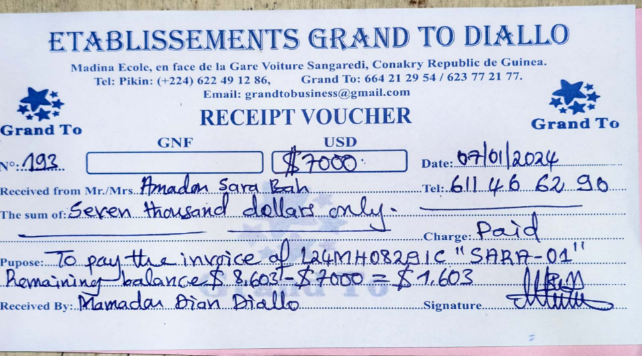 ETABLISSEMENTS GRAND TO DIALLO
Madina Ecole, en face de la Gare Voiture Sangaredi, Conakry Republic de Guinea.
Tel: Pikin: (+224) 622 49 12 86, Grand To: 664 21 29 54 / 623 77 21 77.
Email: grandtobusiness@gmail.com
Grand To RECEIPT VOUCHER Grand To
GNF USD
N°: 193 $7000 Date: 07/01/2024
Received from Mr./Mrs. Amadou Sara Bah Tel: 611 46 62 90
The sum of: Seven thousand dollars only.
Charge: Paid
Pupose: To pay the invoice of L24MH082AIC "SARA-01"
Remaining balance $ 8,603 - $7000 = $ 1,603
Grand To
Received By: Mamadou Dian Diallo Signature